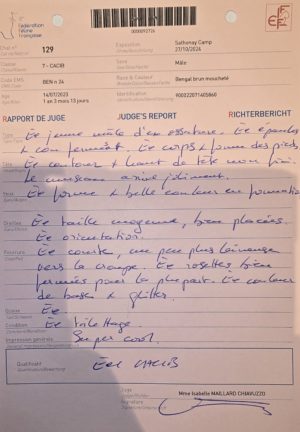 Fédération
Féline
Française
0000092726
FIFe
Chat n° 129 Exposition Sathonay Camp
27/10/2024
Classe 7 - CACIB Sexe Mâle
Code EMS BEN n 24 Race & Couleur Bengal brun moucheté
Age 14/07/2023 Identification 900222071405860
1 an 3 mois 13 jours
RAPPORT DE JUGE JUDGE'S REPORT RICHTERBERICHT
Ex jeune mâle d'ex ossature. Ex épaules
& cou Ex corps & forme des pieds
Tête Ex contour & haut de tête
Le museau arrive joliment.
Yeux Ex forme & belle couleur en formation
Oreilles Ex taille moyenne, bien placées.
Ex orientation.
Fourrure Ex courte, un peu plus laineuse
vers la croupe. Ex rosettes bien
fermées pour la plupart. Ex couleur
de base & glitter.
Queue Ex
Condition Ex toilettage
Impression générale Super cool
Qualificatif Exc1 CACIB
Juge Mme Isabelle MAILLARD CHIAVUZZO
Signature